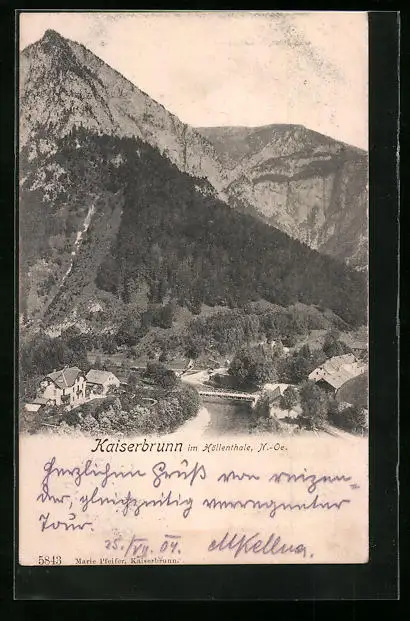 Kaiserbrunn im Höllenthale, N.-Oe.
Herzlichen Gruß von reizen-
der, gleichzeitig verregneter
Tour.
25./VII. 04.
5843 Marie Pfeifer, Kaiserbrunn.